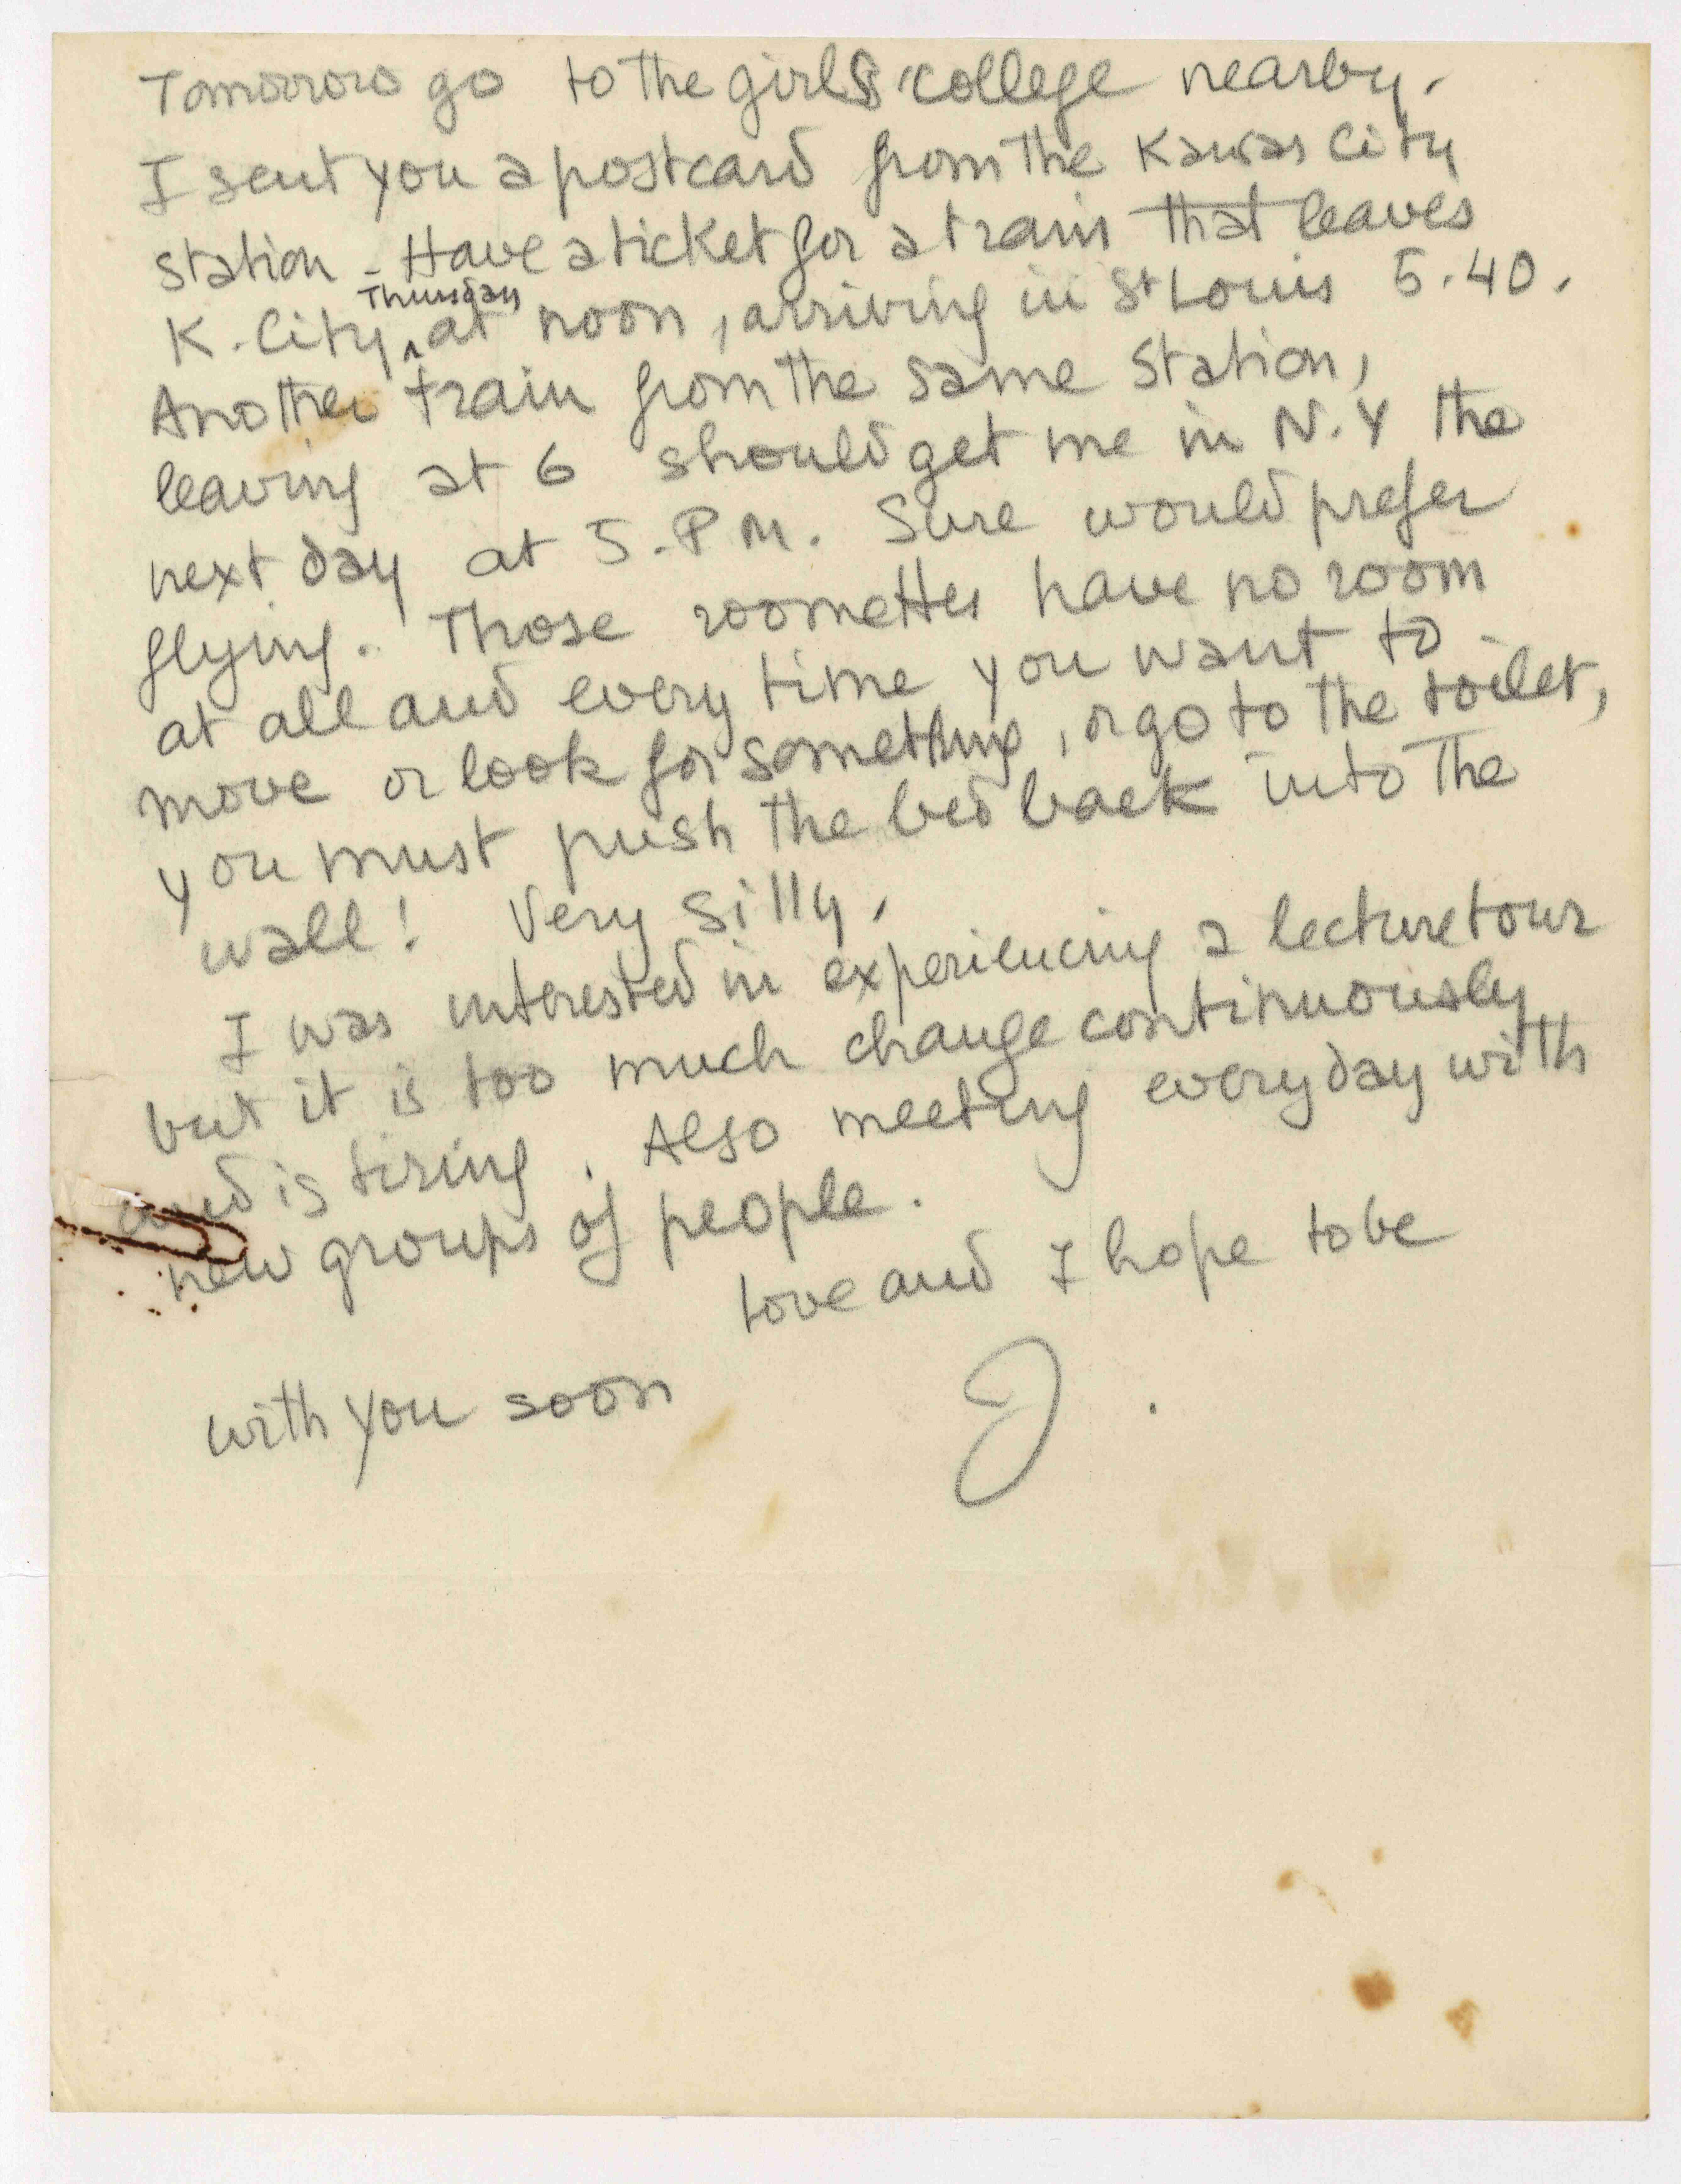 Tomorrow go to the girls college nearby.
I sent you a postcard from the Kansas City
station - Have a ticket for a train that leaves
K. City, Thursday at noon, arriving in St Louis 5.40.
Another train from the same station,
leaving at 6 should get me in N.Y the
next day at 5. P M. Sure would prefer
flying. Those roomettes have no room
at all and every time you want to
move or look for something, or go to the toilet,
you must push the bed back into the
wall! Very silly.
I was interested in experiencing a lecture tour
but it is too much change continuously
and is tiring. Also meeting everyday with
new groups of people.
Love and I hope to be
with you soon
J.